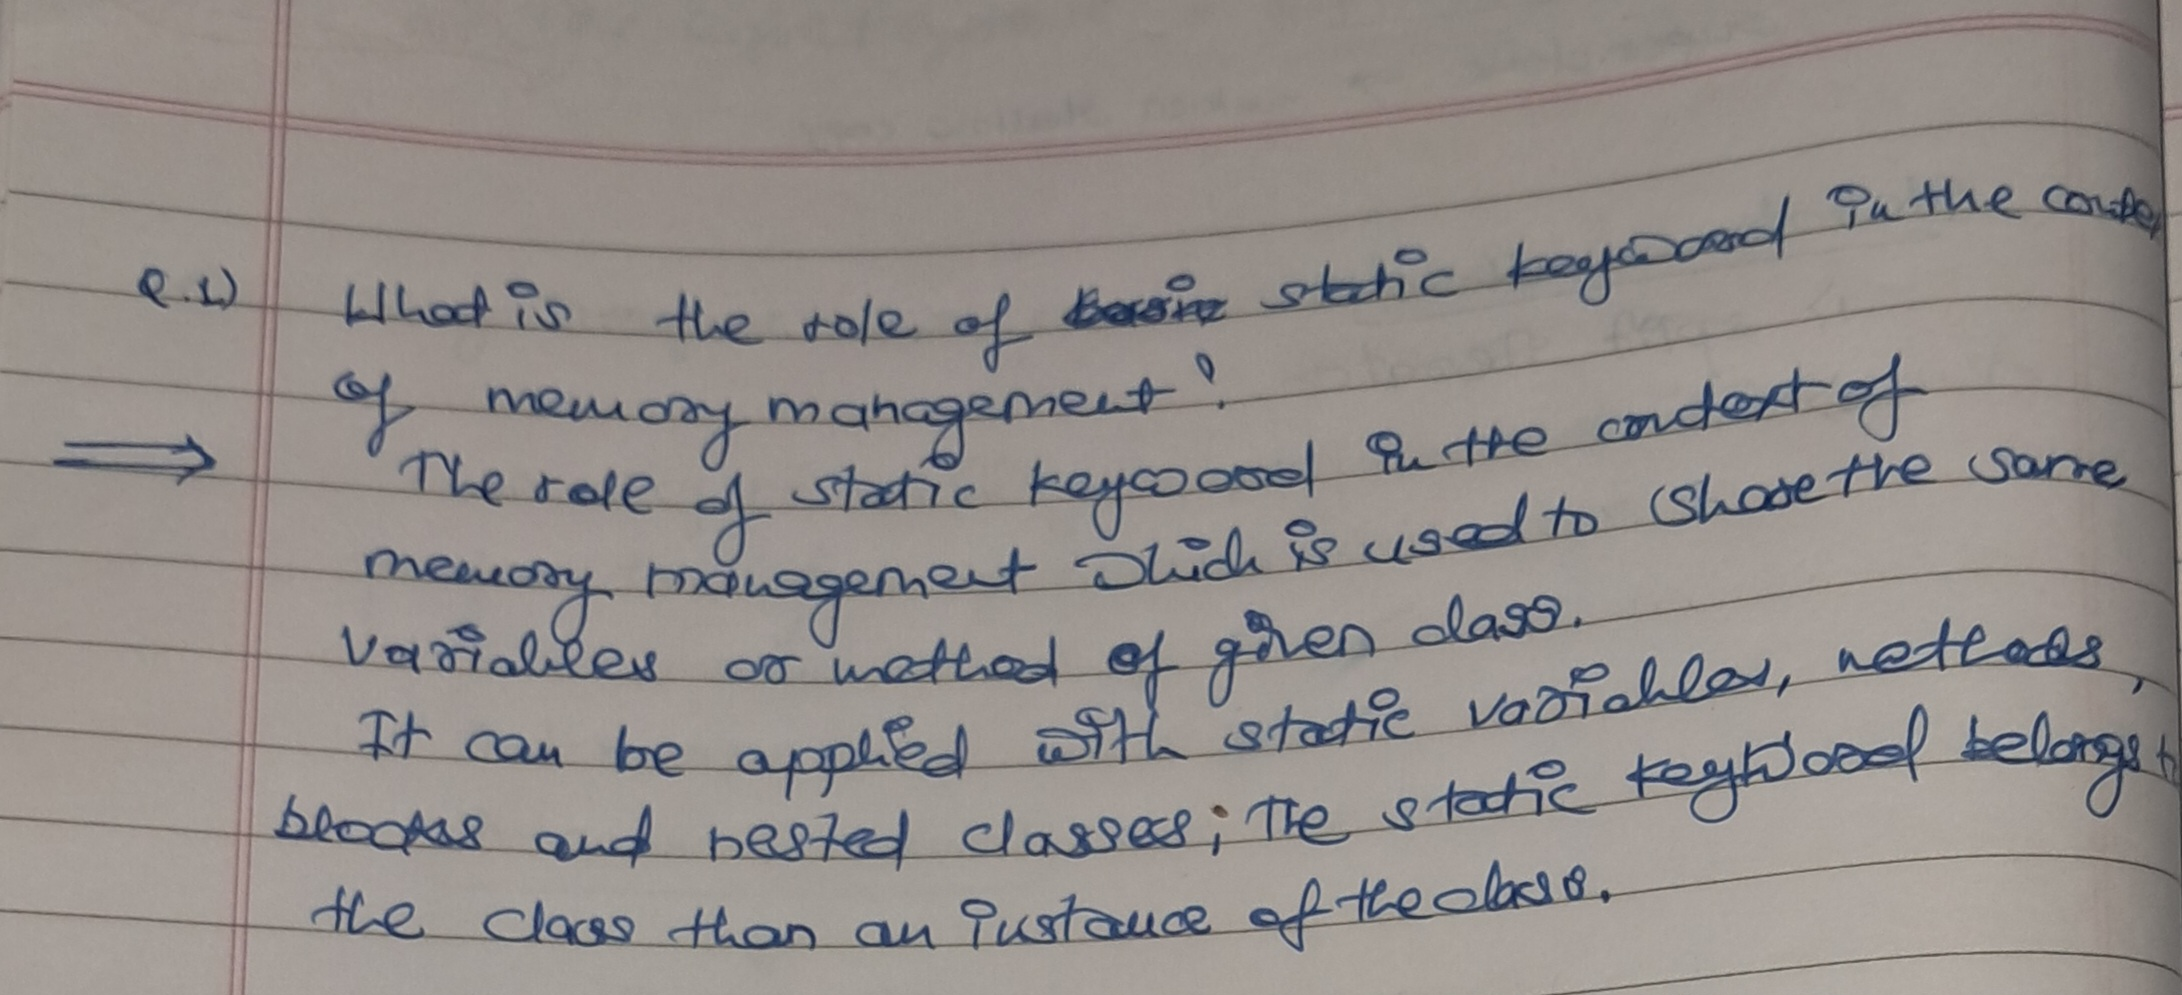 Q.1) What is the role of static keyword in the conte
of memory management?
⟹ The role of static keyword in the context of
memory management which is used to share the same
variables or method of given class.
It can be applied with static variables, methods,
blocks and nested classes; The static keyword belongs t
the class than an instance of the class.